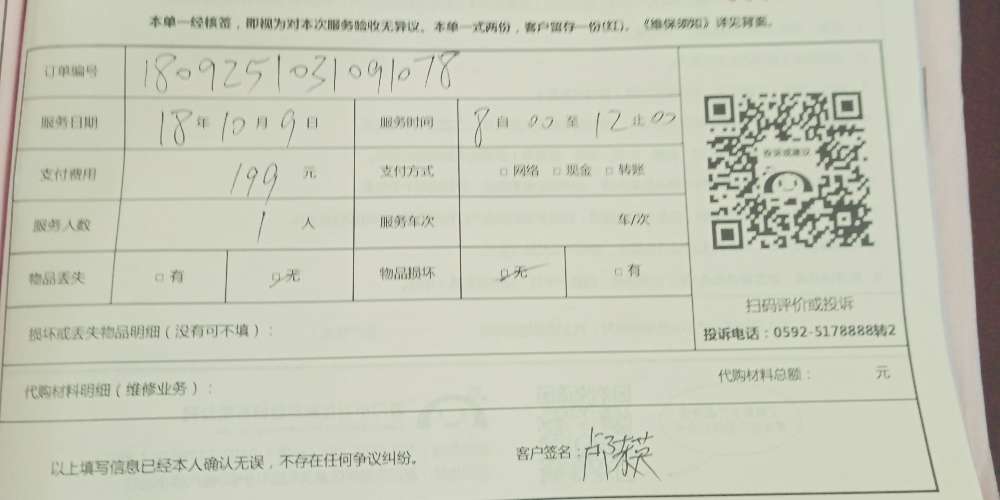 本单一经核签，即视为对本次服务验收无异议。本单一式两份，客户留存一份(红)。《维保须知》详见背面。
订单编号 1809251031091078
服务日期 18年10月9日 服务时间 8自00至12止00
支付费用 199元 支付方式 □网络 □现金 □转账
服务人数 1人 服务车次 车/次
物品丢失 □有 ☑无 物品损坏 ☑无 □有
投诉或建议
扫码评价或投诉
投诉电话：0592-5178888转2
损坏或丢失物品明细（没有可不填）：
代购材料明细（维修业务）： 代购材料总额： 元
以上填写信息已经本人确认无误，不存在任何争议纠纷。 客户签名：